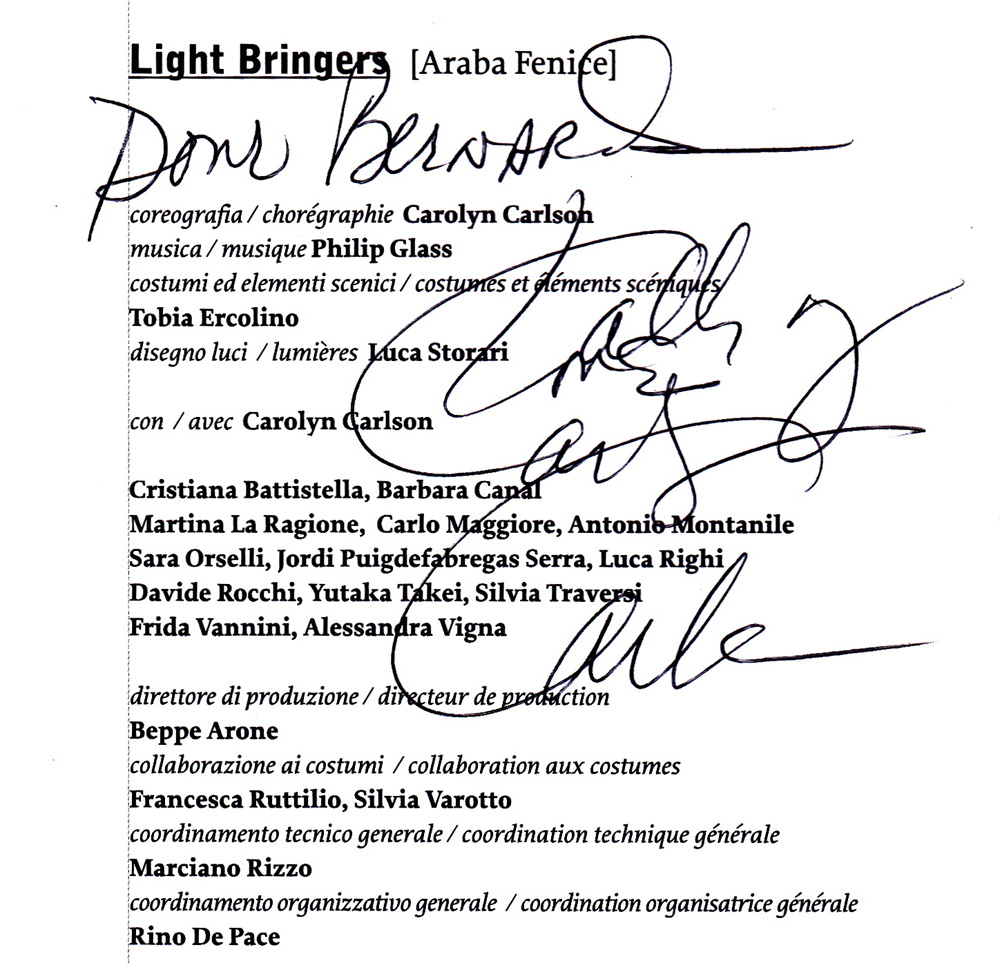 Light Bringers [Araba Fenice]
Pour BERNARD
coreografia / chorégraphie Carolyn Carlson
musica / musique Philip Glass
costumi ed elementi scenici / costumes et éléments scéniques
Tobia Ercolino
disegno luci / lumières Luca Storari
con / avec Carolyn Carlson
Cristiana Battistella, Barbara Canal
Martina La Ragione, Carlo Maggiore, Antonio Montanile
Sara Orselli, Jordi Puigdefabregas Serra, Luca Righi
Davide Rocchi, Yutaka Takei, Silvia Traversi
Frida Vannini, Alessandra Vigna
direttore di produzione / directeur de production
Beppe Arone
collaborazione ai costumi / collaboration aux costumes
Francesca Ruttilio, Silvia Varotto
coordinamento tecnico generale / coordination technique générale
Marciano Rizzo
coordinamento organizzativo generale / coordination organisatrice générale
Rino De Pace